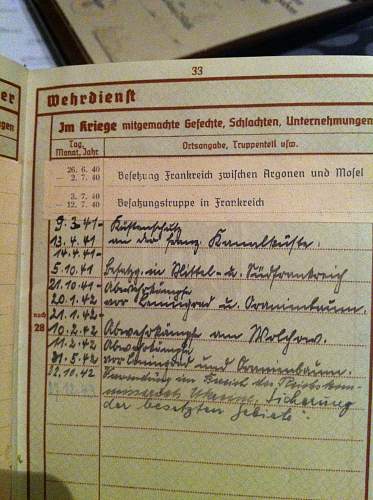 33
er
Wehrdienst
ngen
Im Kriege mitgemachte Gefechte, Schlachten, Unternehmungen
Tag, Monat, Jahr
Ortsangabe, Truppenteil usw.
26. 6. 40
— 2. 7. 40
Besetzung Frankreich zwischen Argonen und Mosel
3. 7. 40
— 12. 7. 40
Besatzungstruppe in Frankreich
9.3.41- Küstenschutz
13.4.41 an der franz. Kanalküste.
14.4.41-
5.10.41 Besatzg. in Mittel- u. Südfrankreich
21.10.41- Abwehrkämpfe
20.1.42 vor Leningrad u. Oranienbaum.
21.1.42-
nach 28
10.2.42 Abwehrkämpfe am Wolchow.
11.2.42 Abwehrkämpfe
31.5.42 vor Leningrad und Oranienbaum.
22.10.42 Verwendung im Bereich des Reichskom-
missariats Ukraine, Sicherung
der besetzten Gebiete.